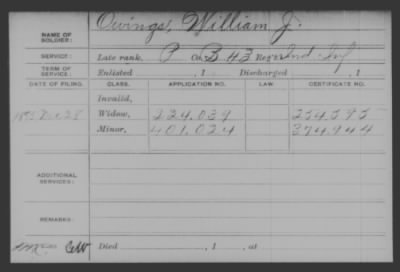 NAME OF SOLDIER: Owings, William J.
SERVICE: Late rank, P Co. B 43 Reg't Ind. Inf
TERM OF SERVICE: Enlisted , 1 Discharged , 1
DATE OF FILING. CLASS. APPLICATION NO. LAW. CERTIFICATE NO.
Invalid,
Dec 28 Widow, 224.039 254.595
Minor, 401.024 374.944
ADDITIONAL SERVICES:
REMARKS:
Died , 1 , at